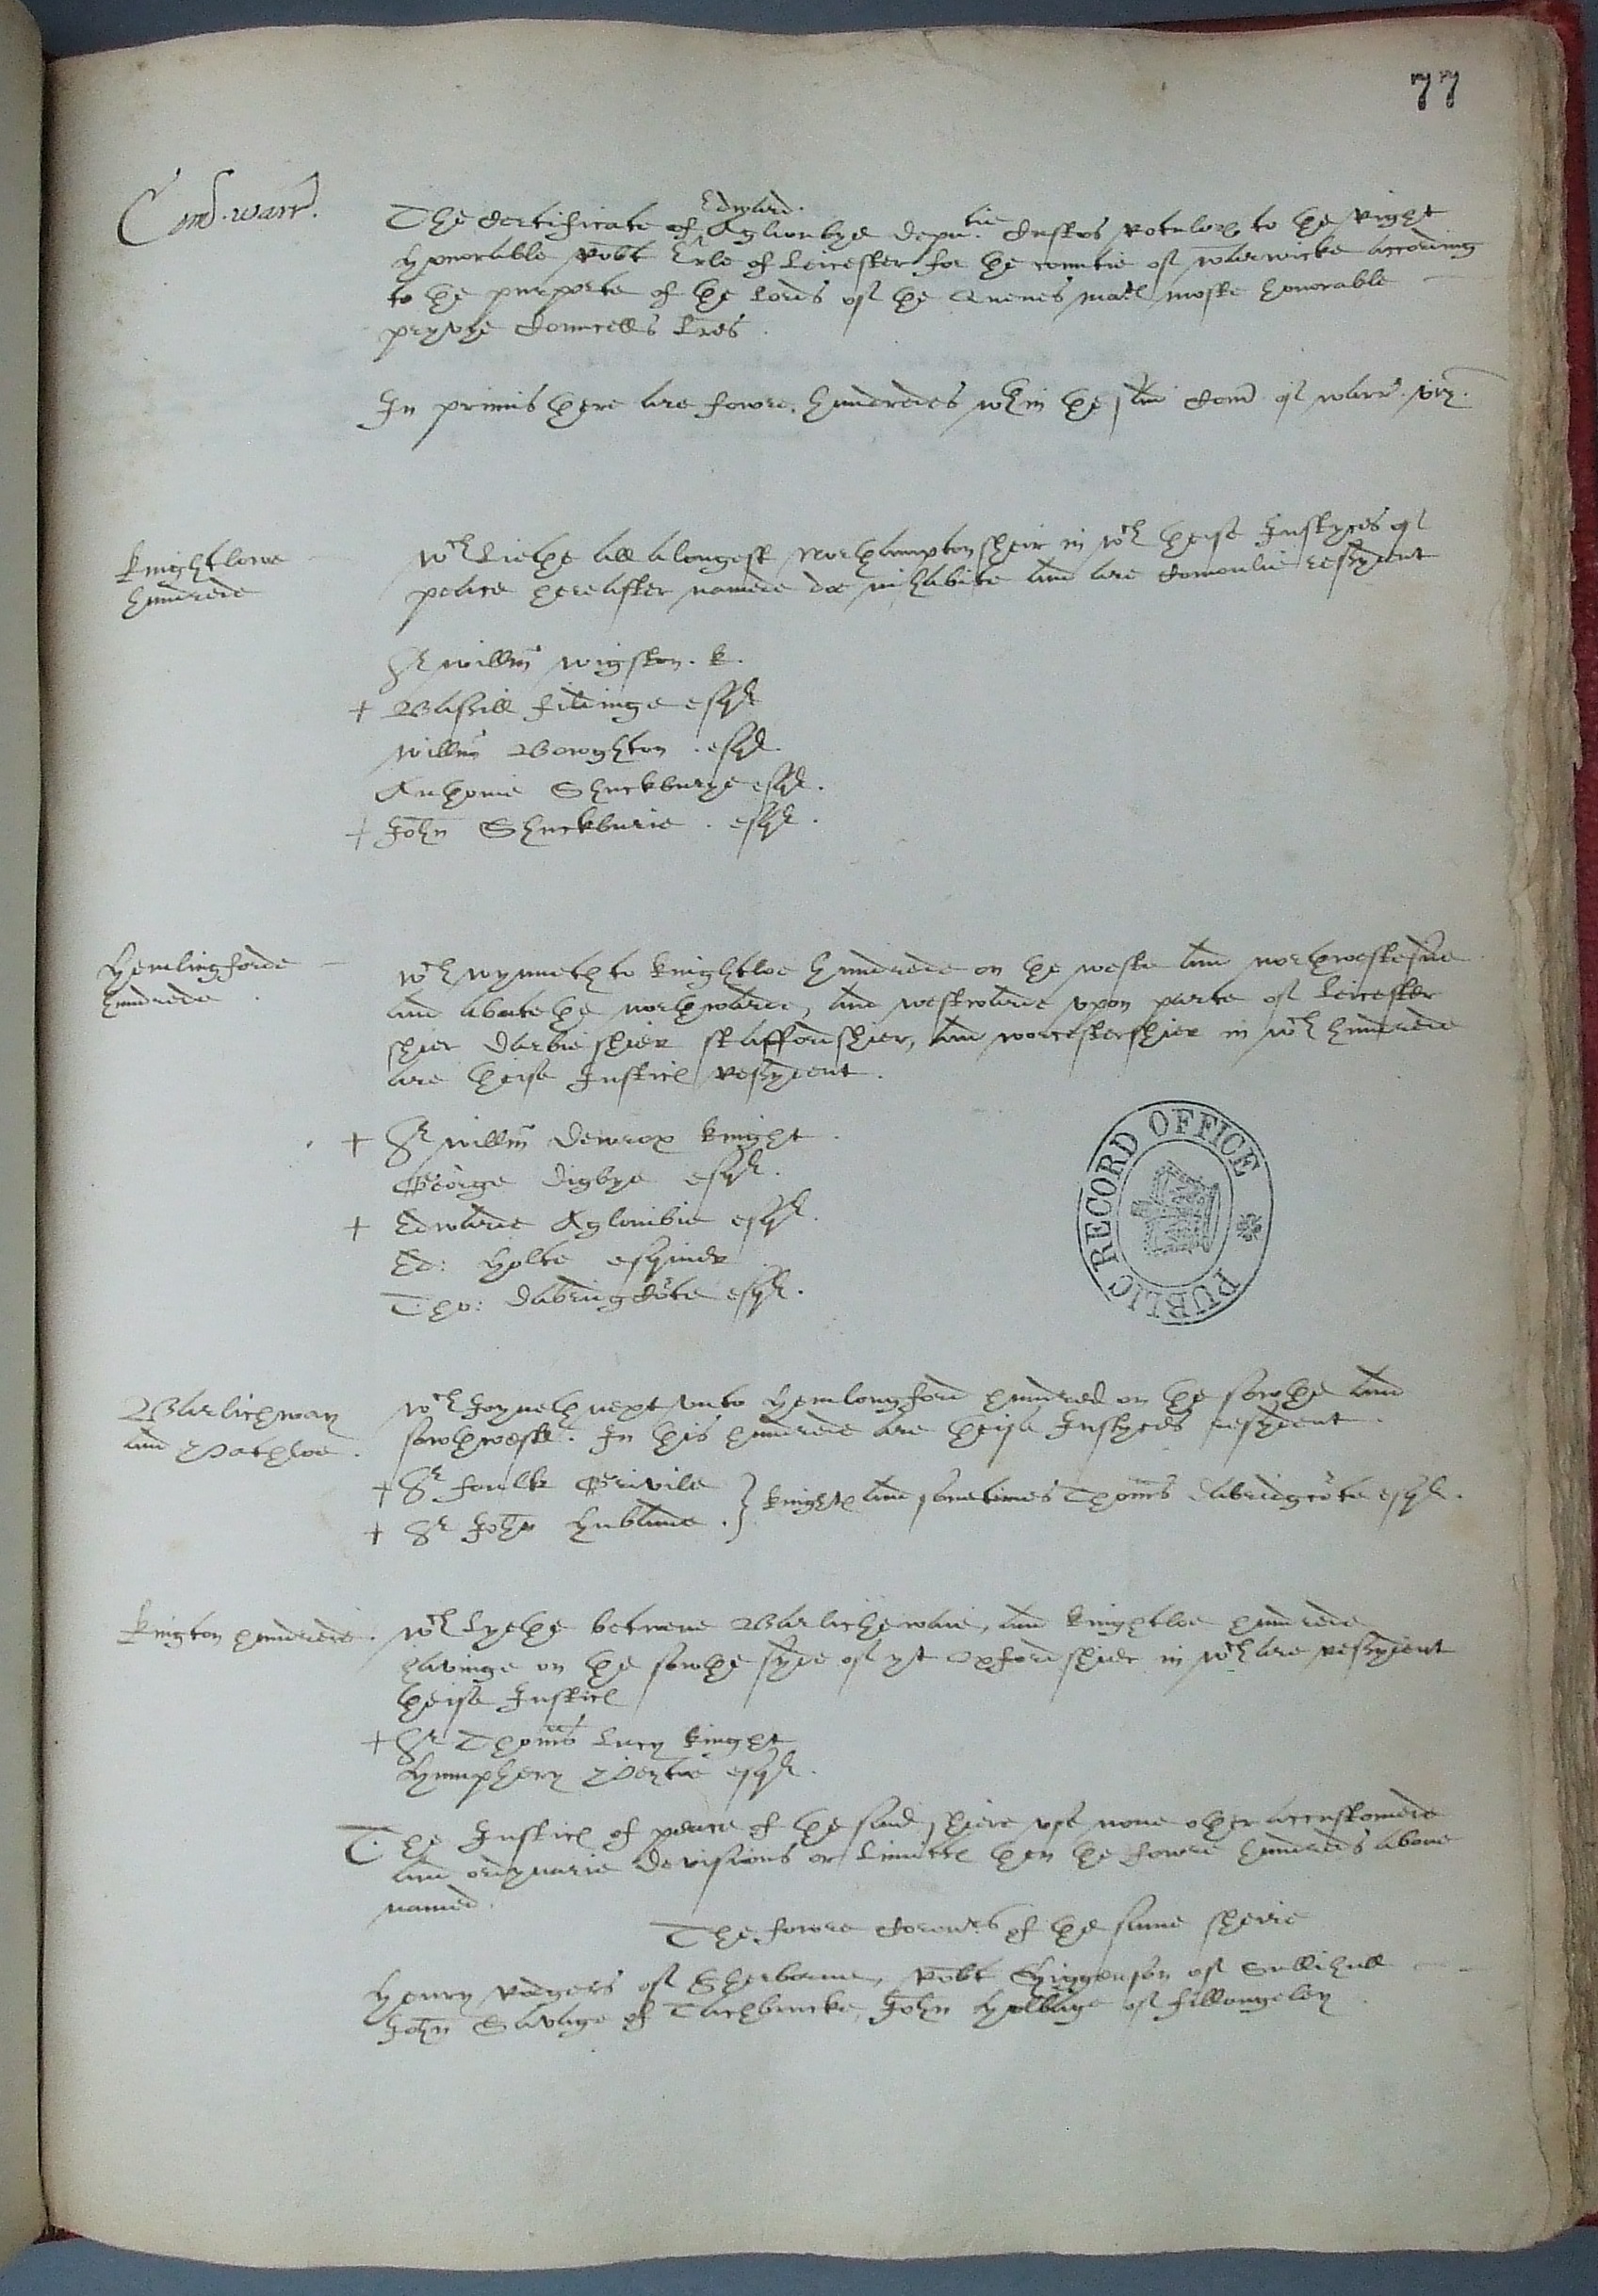 77
Com̃. warr̃.
The Certificate of Edward. Aglionbye deputie Custos rotulor to the right
Honorable Robt Erle of Leicester for the countie of warwicke according
to the purporte of the Lords of the Quenes Matꝭ moste honorable
pryvye Councells lres.
In primis there are fowre hundredes wthin the said Com̃ of warr̃. viz.
Knightlowe
hundrede
wch liethe all alongest Northampton sheir in wch theise Iustyces of
peace hereafter named doe inhabite and are comonlie resydent
Sr Willm̃ Wigston. k.
+ Basill Fildinge esqr
Willm̃ Boughton. esqr.
Anthonie Shuckburge esqr.
+ John Shuckburie. esqr.
Hemlingforde
hundrede.
wch wynneth to Knightloe hundrede on the weste and northweste side
and abutethe northwarde, and westwarde vpon parte of Leicester
shier Darbie shier staffordshier, and worcestershier in wch hundrede
are theise Iusticꝭ resydent.
+ Sr Willm̃ Devrox knight.
George Digbye esqr.
+ Edwarde Aglonbie esqr.
Ed: Holte esquier
Tho: Dabrugcote esqr.
Barlichway
and Pathloe.
wch Ioyneth next vnto Hemlongford hundred on the sowthe and
sowthwest. In this hundrede are theise Iustyces resydent.
+ Sr Foulk Grivile
+ Sr John Hubaude. } knightꝭ and sometimes Thom̃s Dabridgcote esqr.
Kington hundrede.
wch Lyethe betwene Barlichewaie, and Knightloe hundrede
havinge on the sowthe syde of yt Oxford shier in wch are resydent
theise Iusticꝭ
+ Sr Thom̃s Lucy knight
Humphery Peyto esqr.
The Iusticꝭ of peace of the said shiere vse none other accustomede
and ordynarie devisions or limittꝭ then the fowre hundreds above
named.
The fowre Corowrs of the same sheire
Henry Rogers of Sherborne, Robt Higgenson of Sullihull
John Savage of Tachbrucke, John Holbage of Fillongeley
PUBLIC RECORD OFFICE